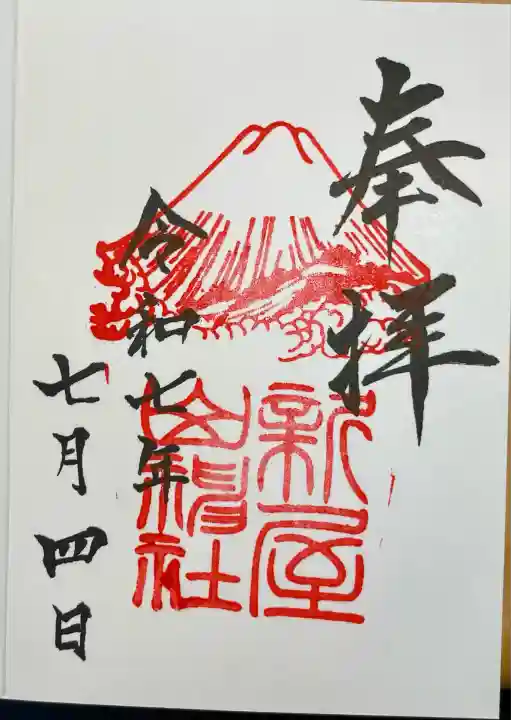 奉拝
新屋
山神社
令和七年
七月四日